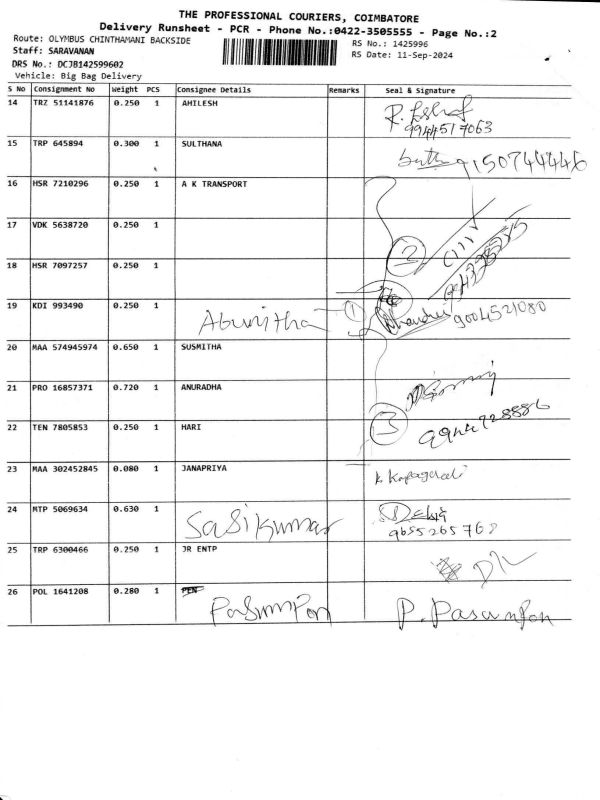 THE PROFESSIONAL COURIERS, COIMBATORE
Delivery Runsheet - PCR - Phone No.:0422-3505555 - Page No.:2
Route: OLYMBUS CHINTHAMANI BACKSIDE
RS No.: 1425996
Staff: SARAVANAN
RS Date: 11-Sep-2024
DRS No.: DCJB142599602
Vehicle: Big Bag Delivery
S No Consignment No Weight PCS Consignee Details Remarks Seal & Signature
14 TRZ 51141876 0.250 1 AHILESH
9944517063
15 TRP 645894 0.300 1 SULTHANA
9150744446
16 HSR 7210296 0.250 1 A K TRANSPORT
17 VDK 5638720 0.250 1
2
18 HSR 7097257 0.250 1
19 KDI 993490 0.250 1 1
9004521080
20 MAA 574945974 0.650 1 SUSMITHA
21 PRO 16857371 0.720 1 ANURADHA
22 TEN 7805853 0.250 1 HARI 3
23 MAA 302452845 0.080 1 JANAPRIYA
24 MTP 5069634 0.630 1 Sasikumar
9655265768
25 TRP 6300466 0.250 1 JR ENTP
26 POL 1641208 0.280 1 PEN Pasumpon P. Pasumpon